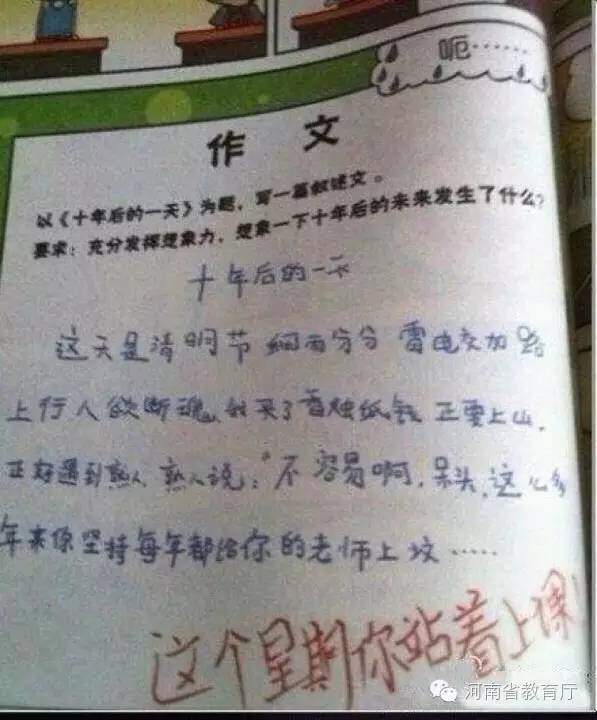 呃……
作 文
以《十年后的一天》为题，写一篇叙述文。
要求：充分发挥想象力，想象一下十年后的未来发生了什么？
十年后的一天
这天是清明节 细雨分分 雷电交加 路
上行人欲断魂，我买了香烛纸钱 正要上山，
正好遇到熟人 熟人说：“不容易啊，呆头，这么多
年来你坚持每年都给你的老师上坟……
这个星期你站着上课！
河南省教育厅